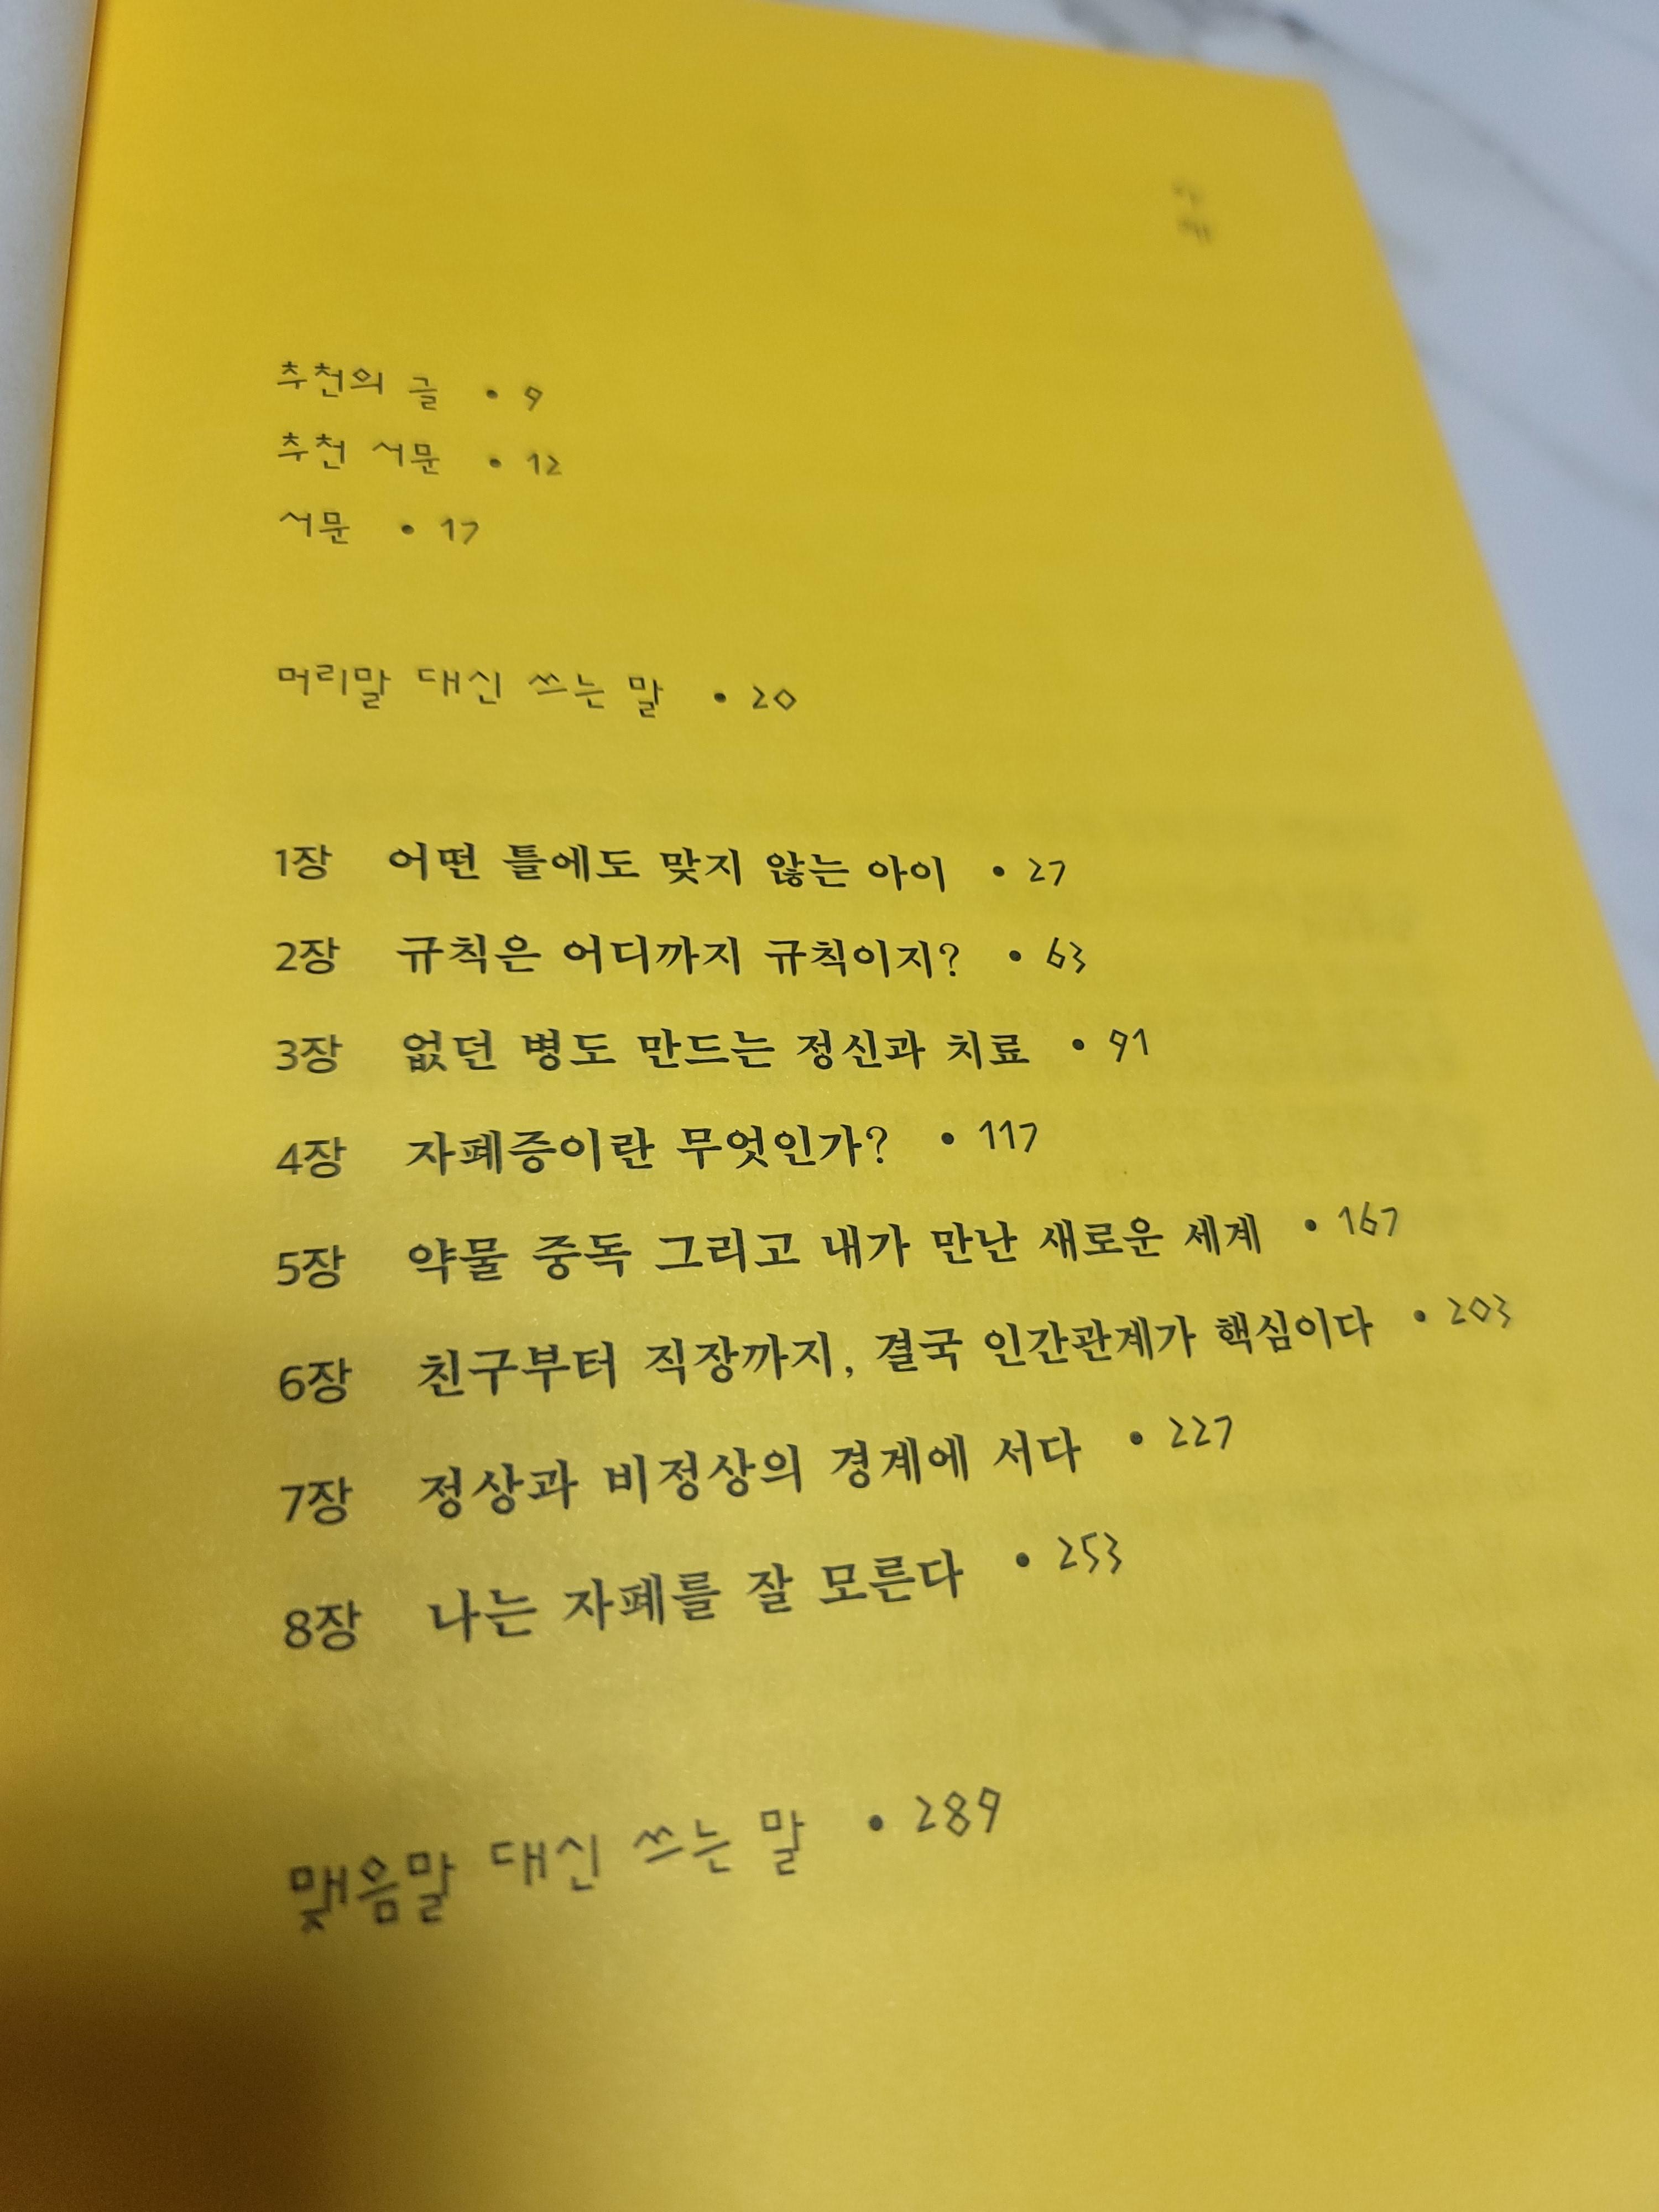 추천의 글 • 9
추천 서문 • 12
서문 • 17
머리말 대신 쓰는 말 • 20
1장 어떤 틀에도 맞지 않는 아이 • 27
2장 규칙은 어디까지 규칙이지? • 63
3장 없던 병도 만드는 정신과 치료 • 91
4장 자폐증이란 무엇인가? • 117
5장 약물 중독 그리고 내가 만난 새로운 세계 • 167
6장 친구부터 직장까지, 결국 인간관계가 핵심이다 • 203
7장 정상과 비정상의 경계에 서다 • 227
8장 나는 자폐를 잘 모른다 • 253
맺음말 대신 쓰는 말 • 289